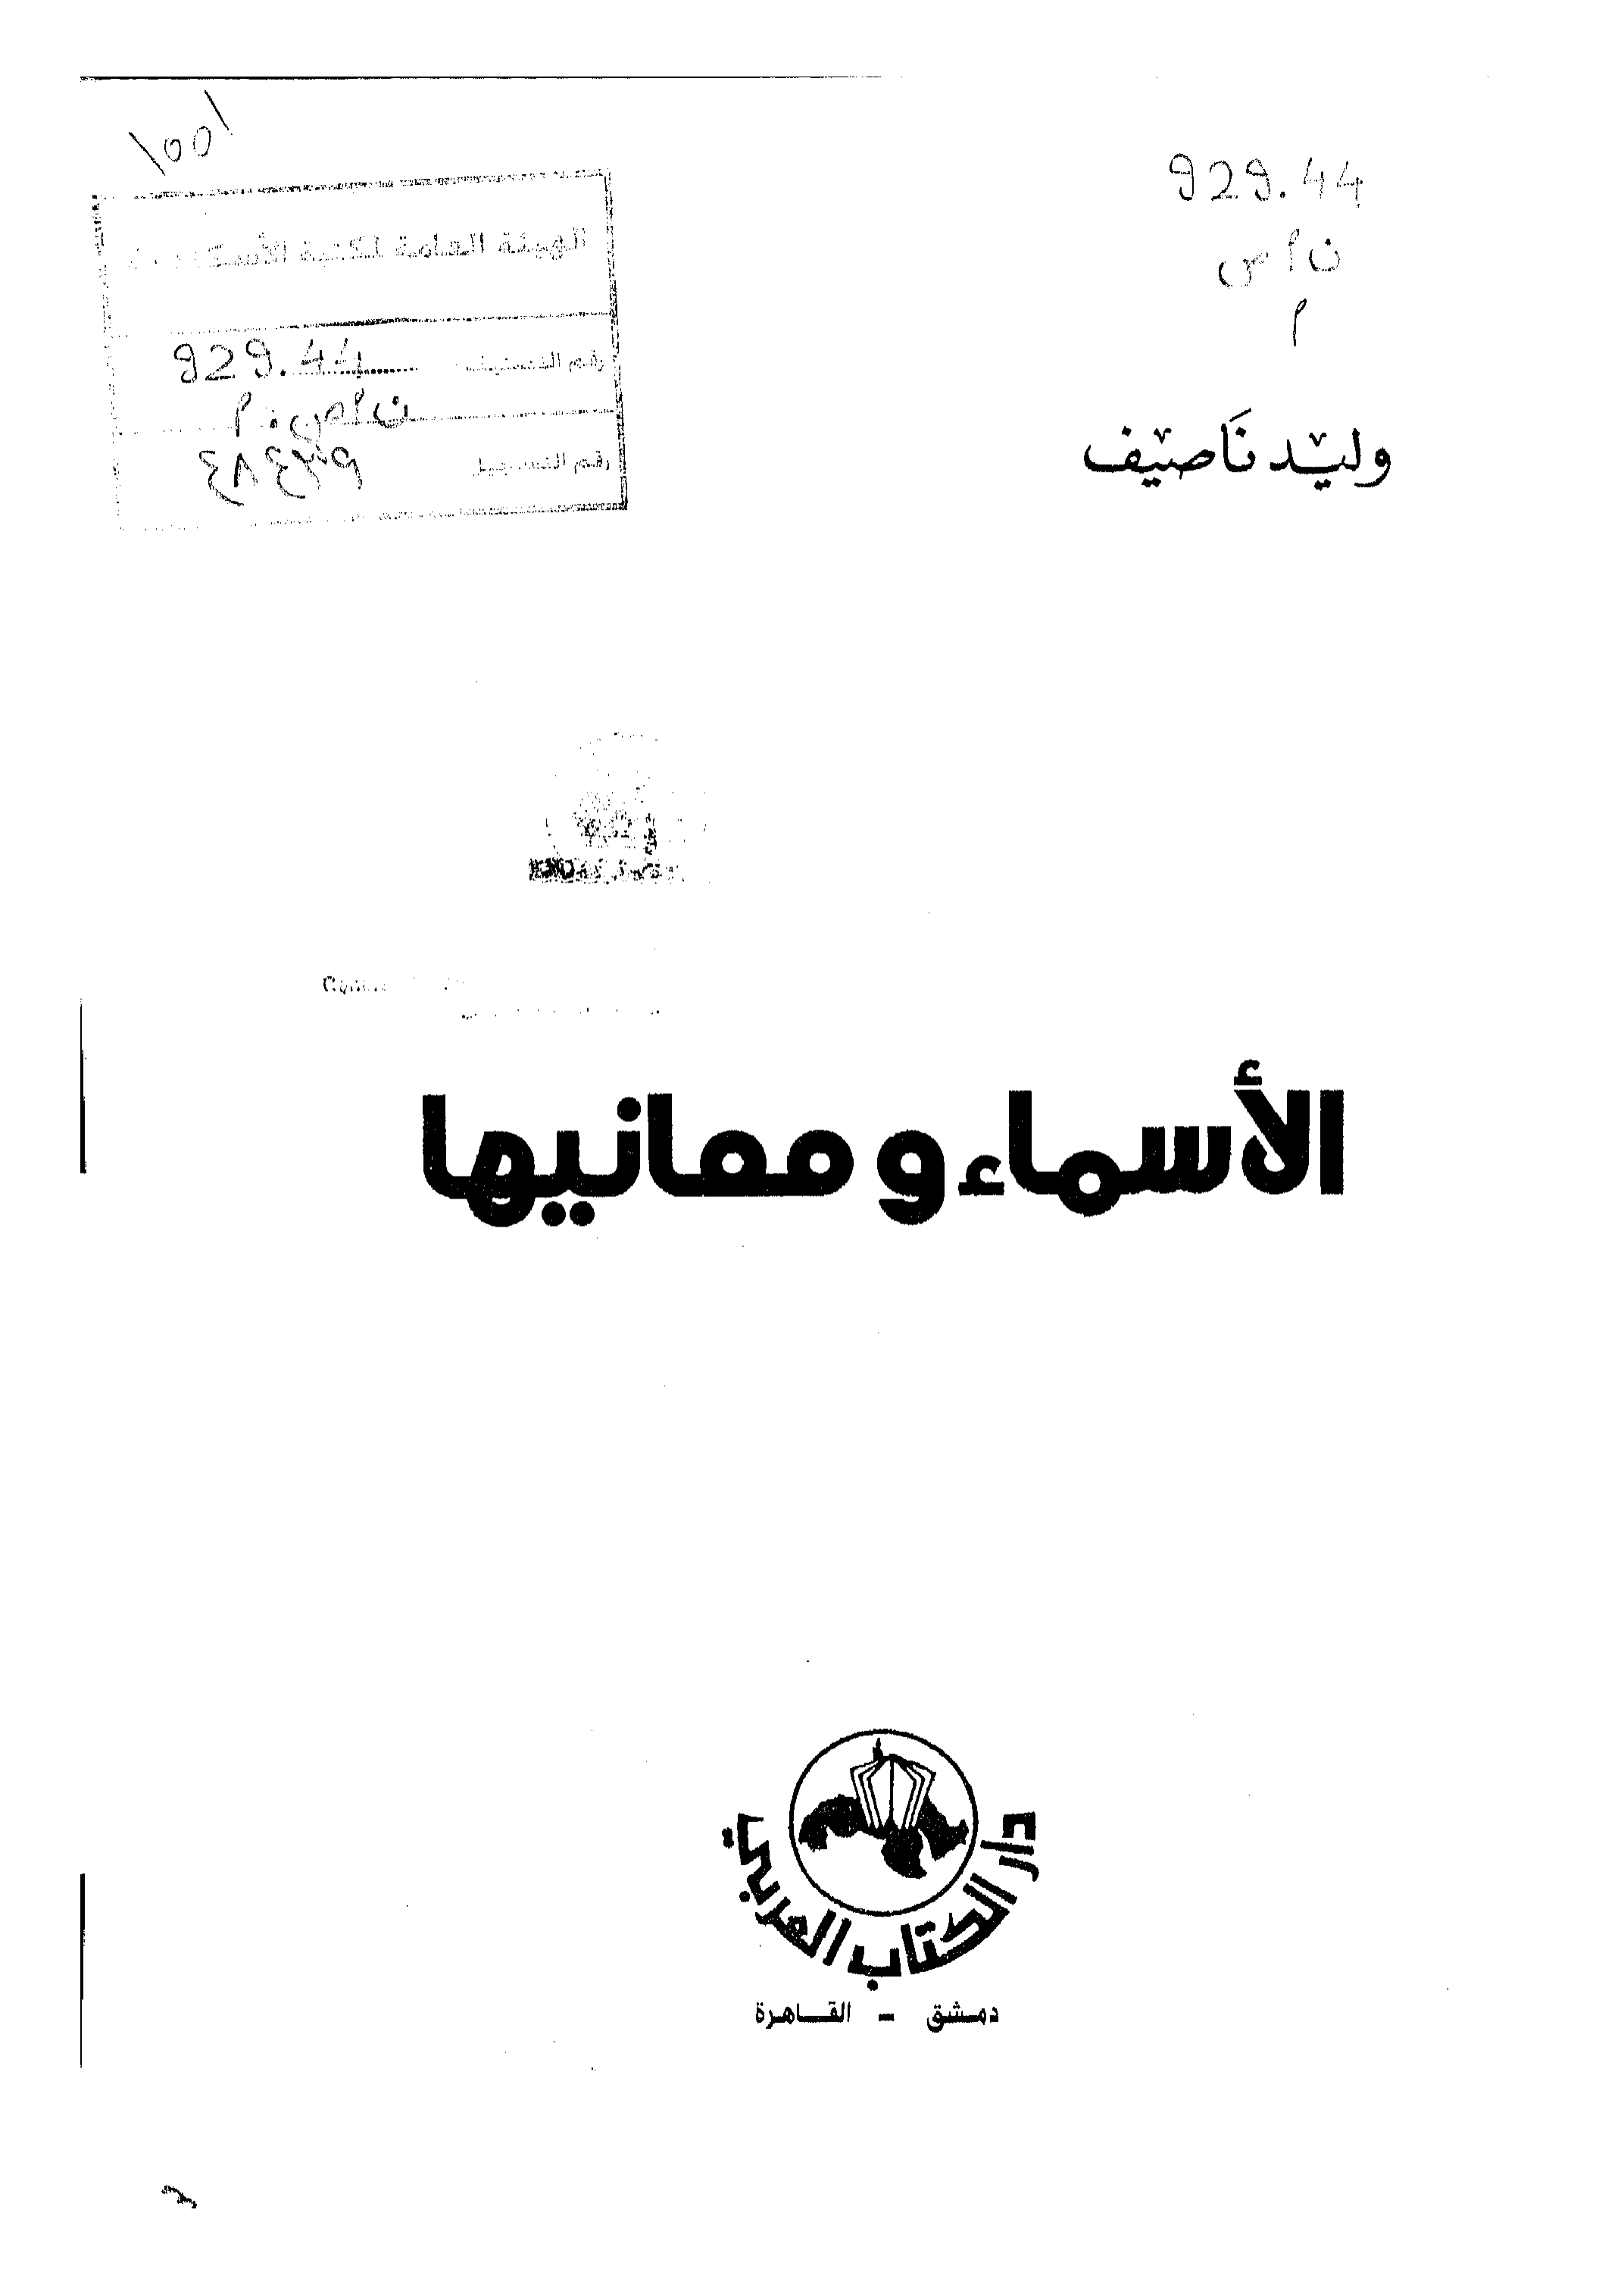 ١٥٥١
929.44
ن ا ص
م
الهيئة العامة لمكتبة الأسكندرية
رقم التصنيف 929.44
ن ا ص . م
رقم التسجيل ٤٨٤٣٩
وليد نَاصيف
الأسماء ومعانيها
دار الكتاب العربي
دمشق - القاهرة